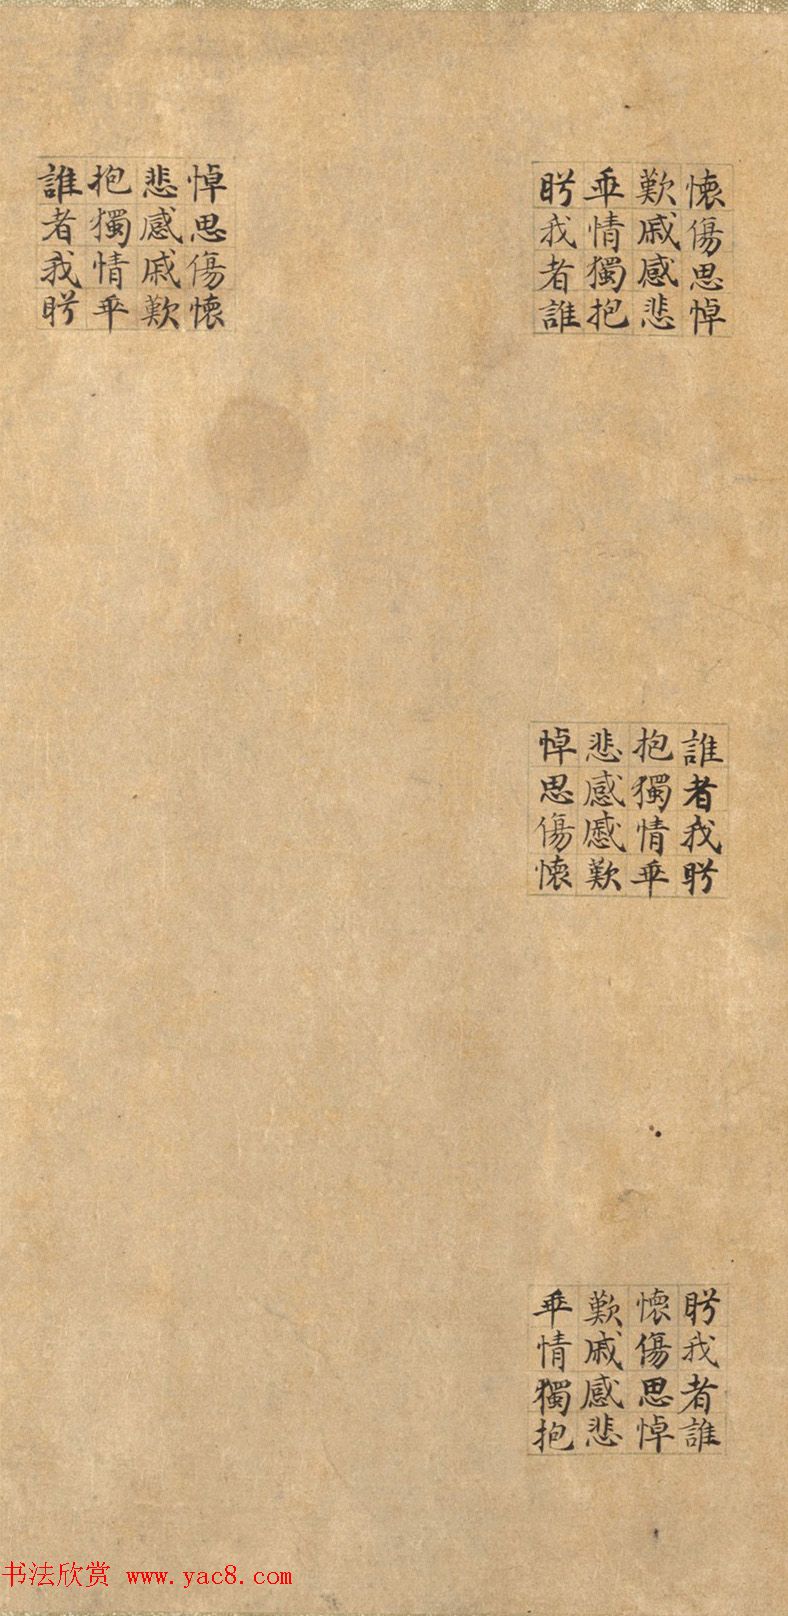 懷傷思悼
歎戚感悲
乖情獨抱
盻我者誰
悼思傷懷
悲感戚歎
抱獨情乖
誰者我盻
誰者我盻
抱獨情乖
悲感慼歎
悼思傷懷
盻我者誰
懷傷思悼
歎戚感悲
乖情獨抱
书法欣赏 www.yac8.com